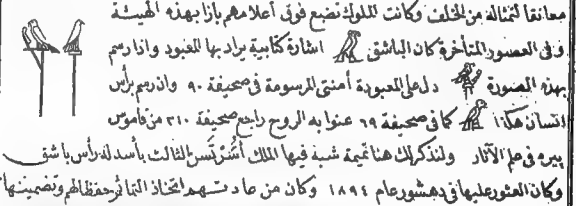 معانقا لتمثاله من الخلف وكانت الملوك تضع فوق أعلامهم بازا بهذه الهيئة
وفى العصور المتأخرة كان الباشق اشارة كتابية يراد بها المعبود واذا رسم
بهذه الصورة دل على المعبودة أمنتى المرسومة فى صحيفة ٩٠ واذ رسم برأس
انسان هكذا كما فى صحيفة ٦٩ عنوا به الروح راجع صحيفة ٣١٠ من قاموس
بيره فى علم الآثار ولنذكر لك هنا تميمة شبه فيها الملك الثالث بأسد له رأس باشق
وكان العثور عليها فى دهشور عام ١٨٩٤ وكان من عادتهم اتخاذ التمائم لحفظ الهم وتضمينها